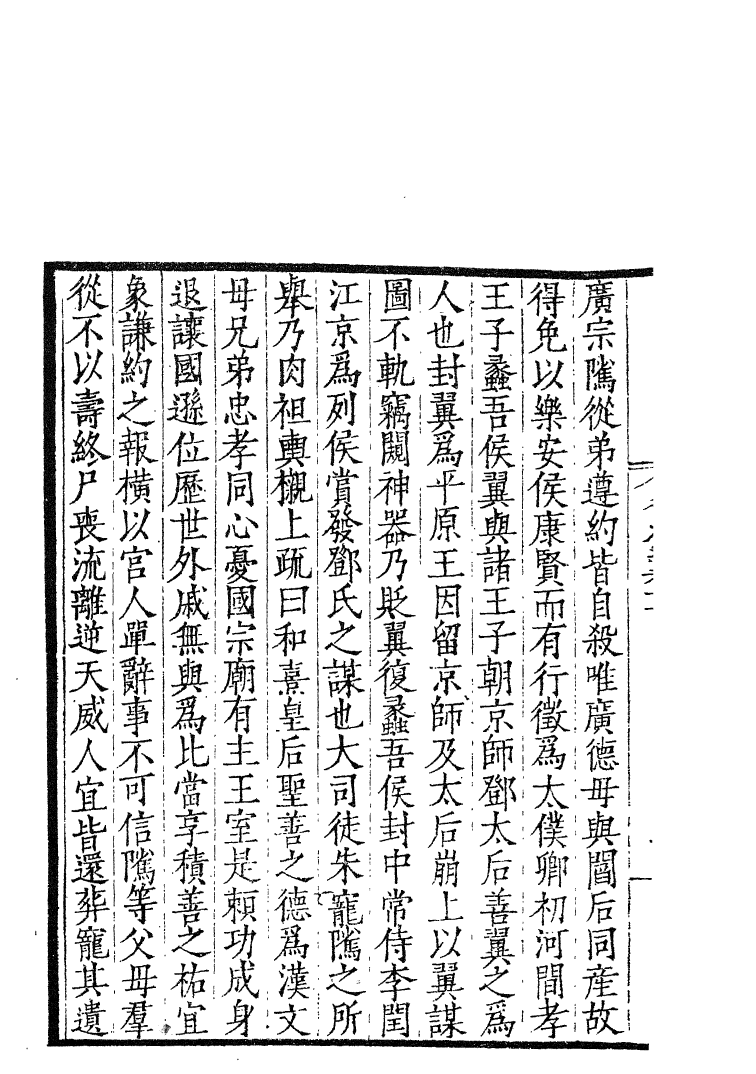 廣宗隲從弟遵約皆自殺唯廣德母與閻后同産故
得免以樂安侯康賢而有行徵爲太僕卿初河間孝
王子蠡吾侯翼與諸王子朝京師鄧太后善翼之爲
人也封翼爲平原王因留京師及太后崩上以翼謀
圖不軌竊闚神器乃貶翼復蠡吾侯封中常侍李閏
江京爲列侯賞發鄧氏之謀也大司徒朱寵隲之所
舉乃肉袒輿櫬上疏曰和熹皇后聖善之德爲漢文
母兄弟忠孝同心憂國宗廟有主王室是頼功成身
退讓國遜位歷世外戚無與爲比當享積善之祐宜
象謙約之報橫以宫人單辭事不可信隲等父母羣
從不以壽終尸喪流離逆天威人宜皆還葬寵其遺